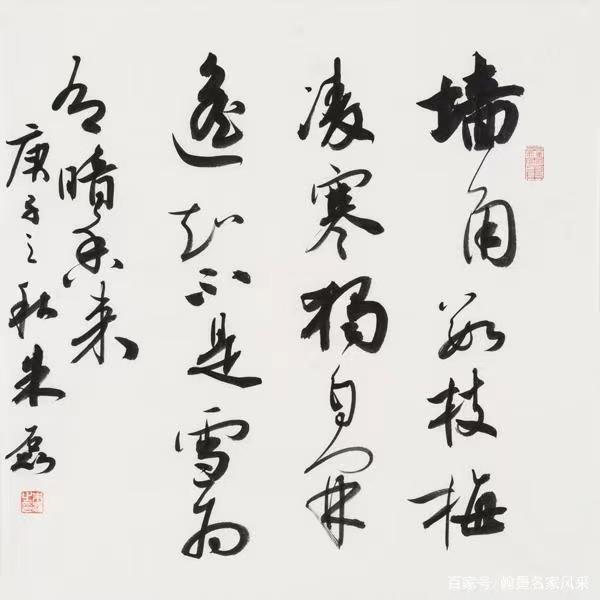 墙角数枝梅
凌寒独自开
遥知不是雪为
有暗香来
庚子之秋朱磊
百家号/翰墨名家风采